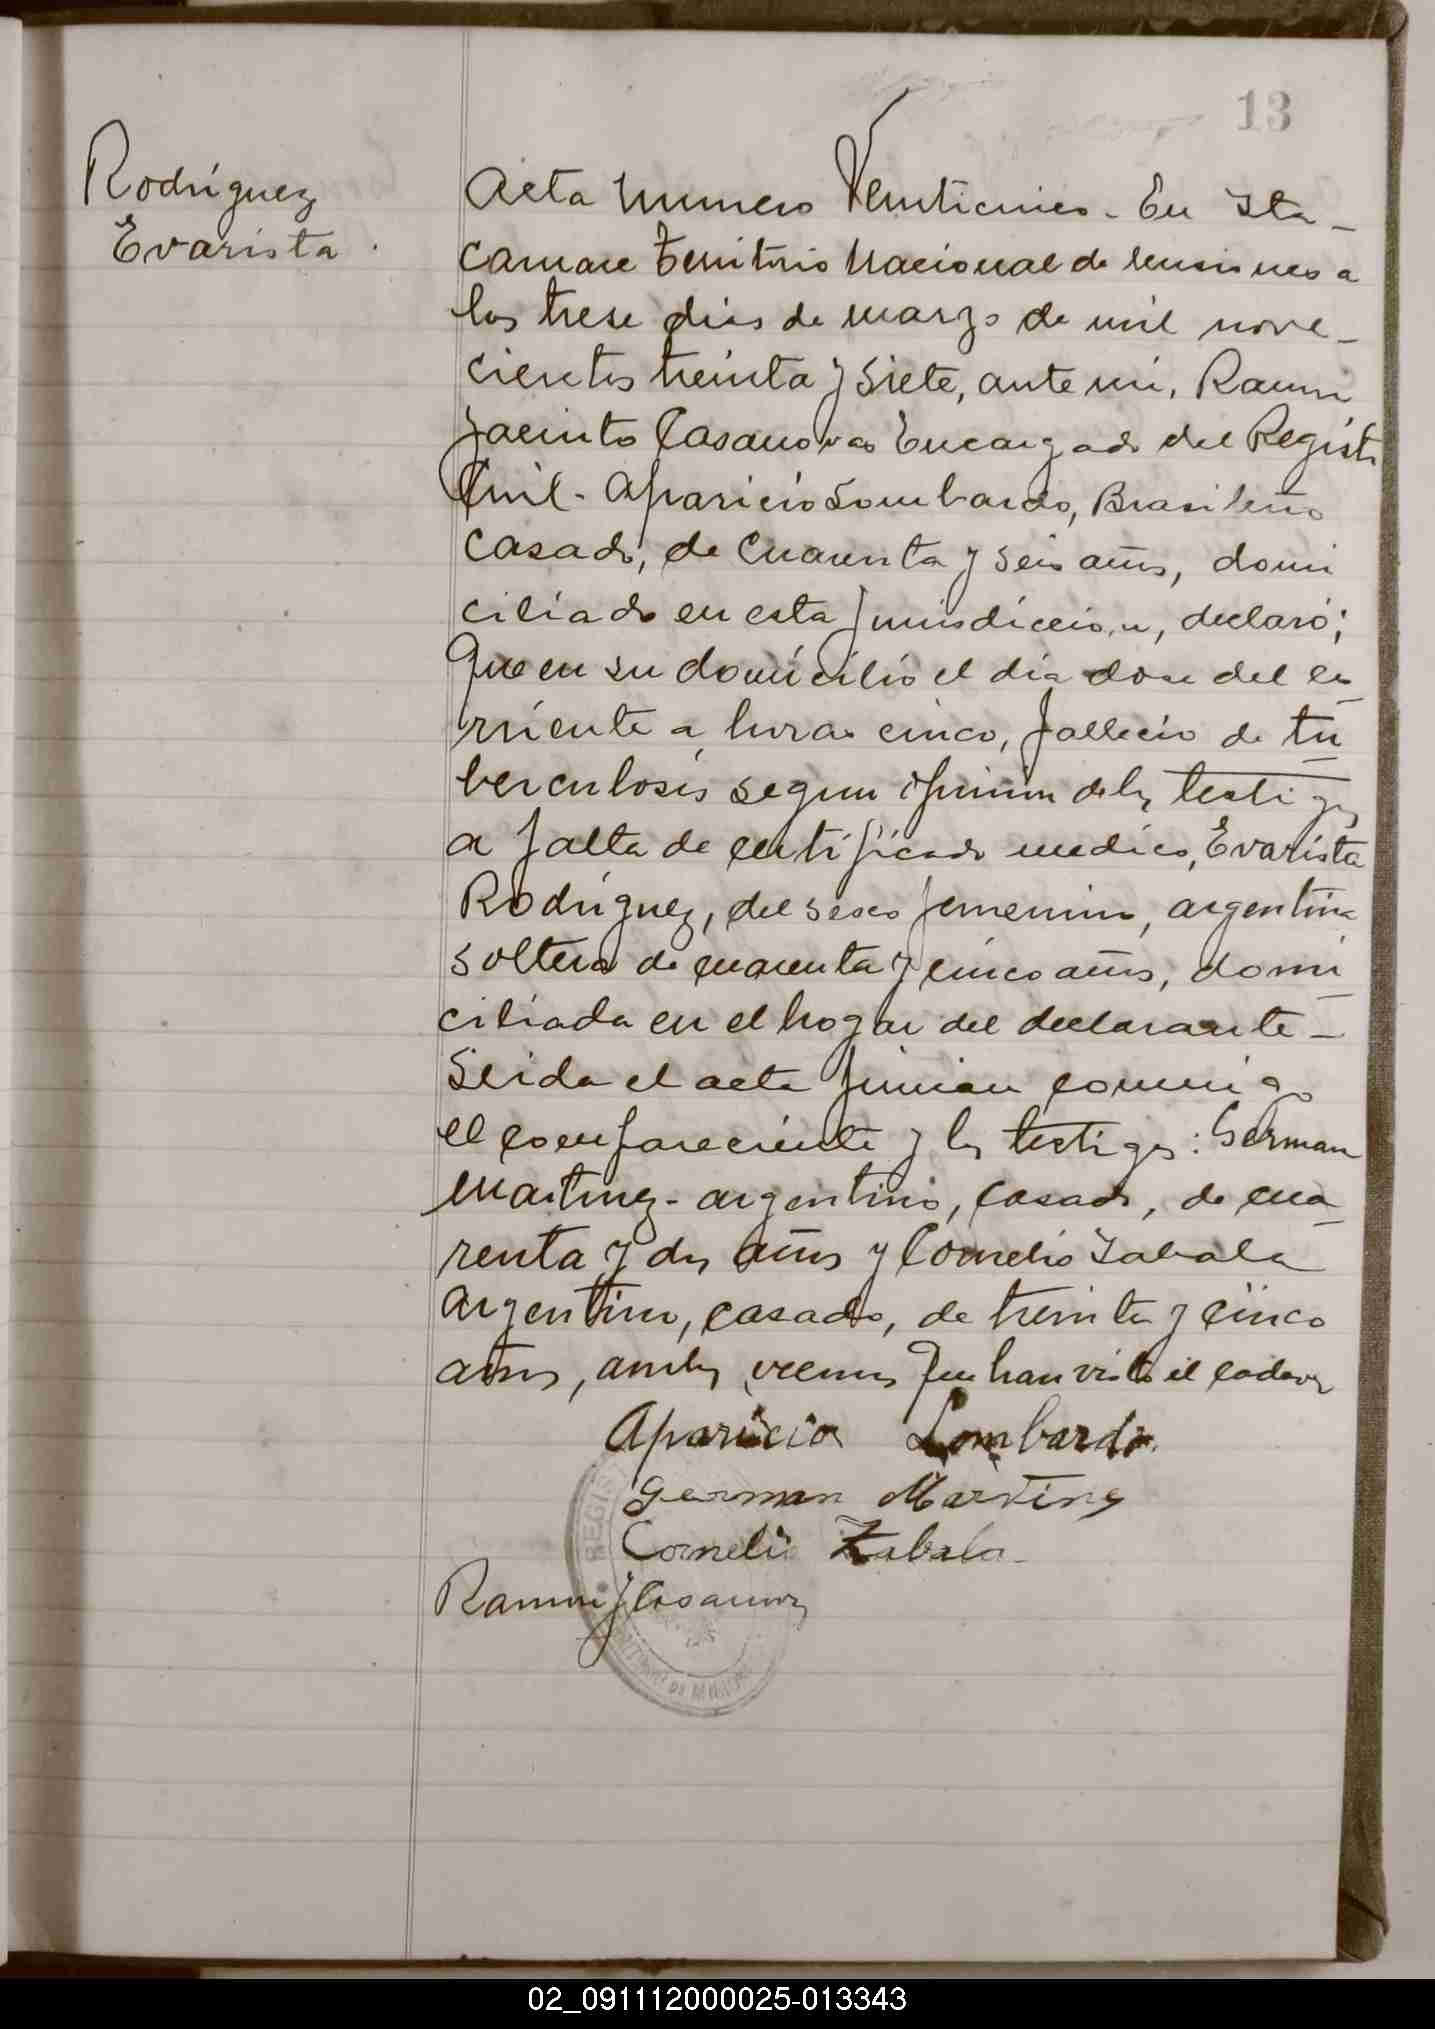 13
Rodríguez
Evarista
Acta Numero Venticinco - En Ita-
caruare Territorio Nacional de Misiones a
los trese dias de marzo de mil nove-
cientos treinta y siete, ante mi, Ramon
Jacinto Casanovas Encargado del Registro
Civil - Aparicio Lombardo, Brasileño
casado, de cuarenta y seis años, domi
ciliado en esta jurisdiccion, declaró;
Que en su domicilio el dia dose del co
rriente a horas cinco, fallecio de tu
berculosis segun opinion de los testigos
a falta de certificado medico, Evarista
Rodríguez, del sexo femenino, argentina
soltera de cuarenta y cinco años, domi
ciliada en el hogar del declarante -
Leida el acta firman conmigo
el compareciente y los testigos: German
Martinez - argentino, casado, de cua
renta y dos años y Cornelio Zabala
argentino, casado, de treinta y cinco
años, ambos vecinos que han visto el cadaver
Aparicio Lombardo.
German Martinez
Cornelio Zabala
Ramon J Casanovas
REGIS
02_091112000025-013343